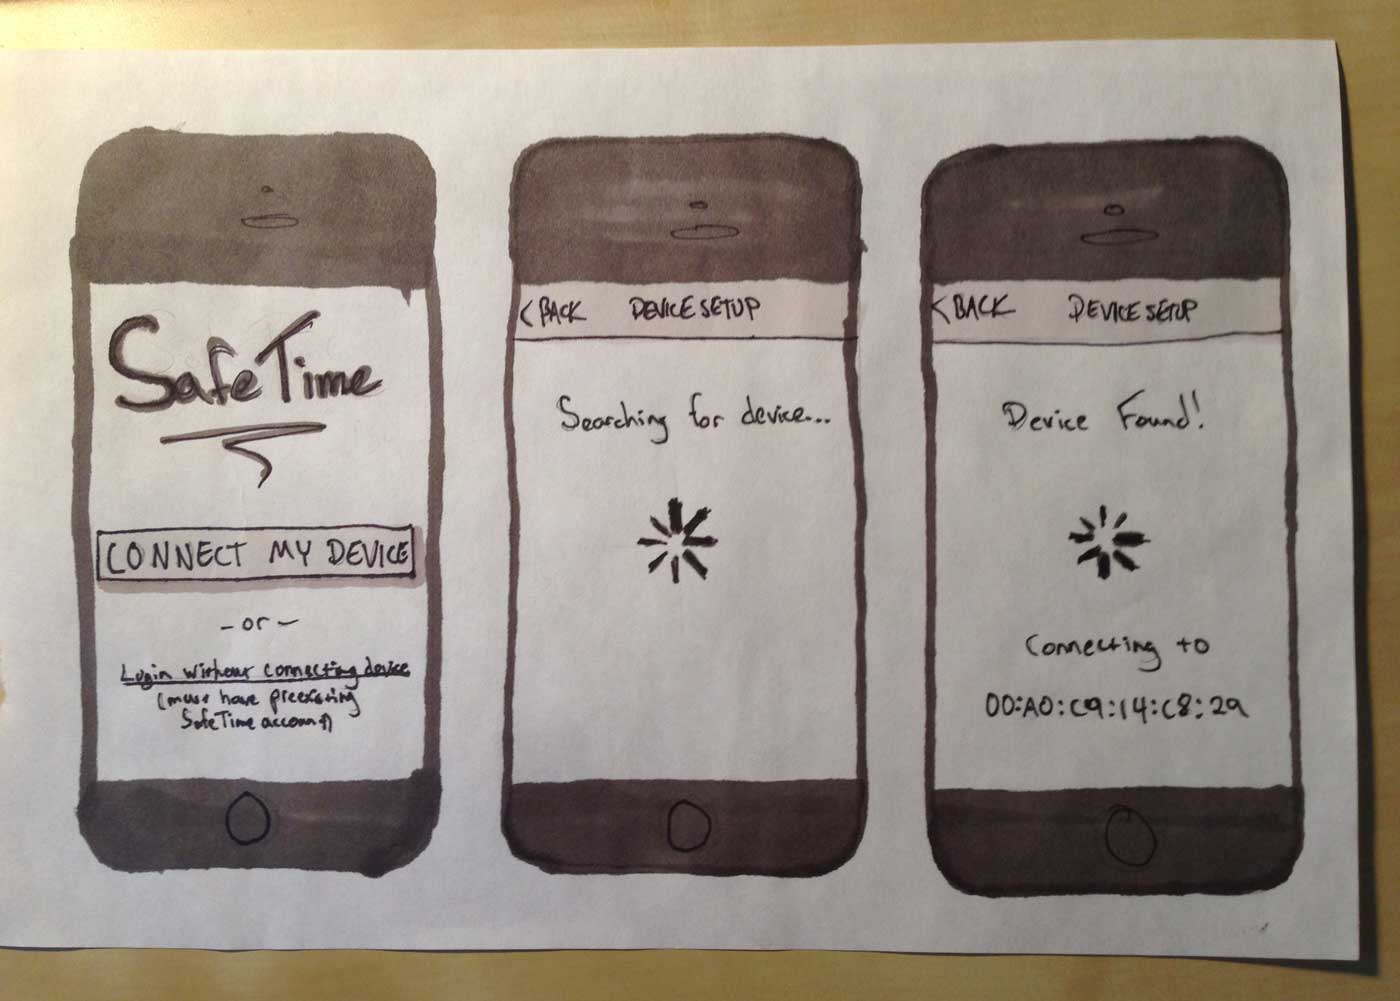 SafeTime
CONNECT MY DEVICE
- or -
Login without connecting device
(must have preexisting
SafeTime account)
< BACK DEVICE SETUP
Searching for device...
< BACK DEVICE SETUP
Device Found!
Connecting to
00:A0:C9:14:C8:29